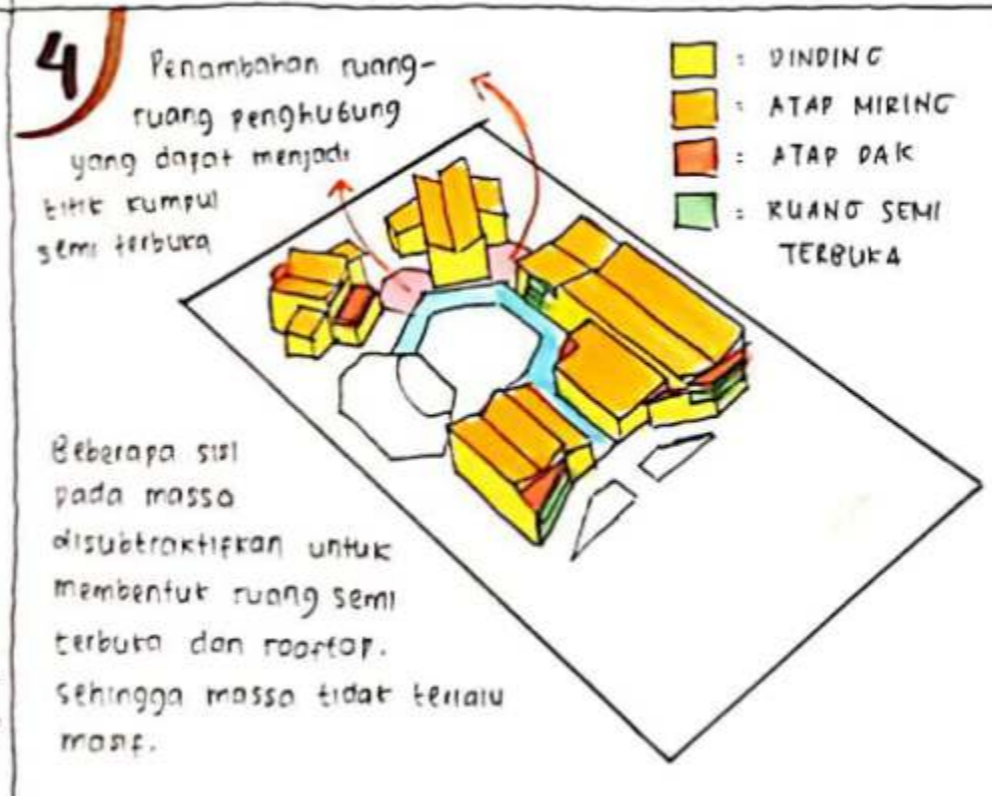 4
Penambahan ruang-
ruang penghubung
yang dapat menjadi
titik kumpul
semi terbuka
: DINDING
: ATAP MIRING
: ATAP DAK
: RUANG SEMI
TERBUKA
Beberapa sisi
pada massa
disubtraktifkan untuk
membentuk ruang semi
terbuka dan rooftop.
Sehingga massa tidak terlalu
masif.